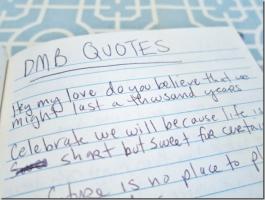 DMB QUOTES
Hey my love do you believe that we
might last a thousand years
Celebrate we will because life is
short but sweet for certain
is no place to pl